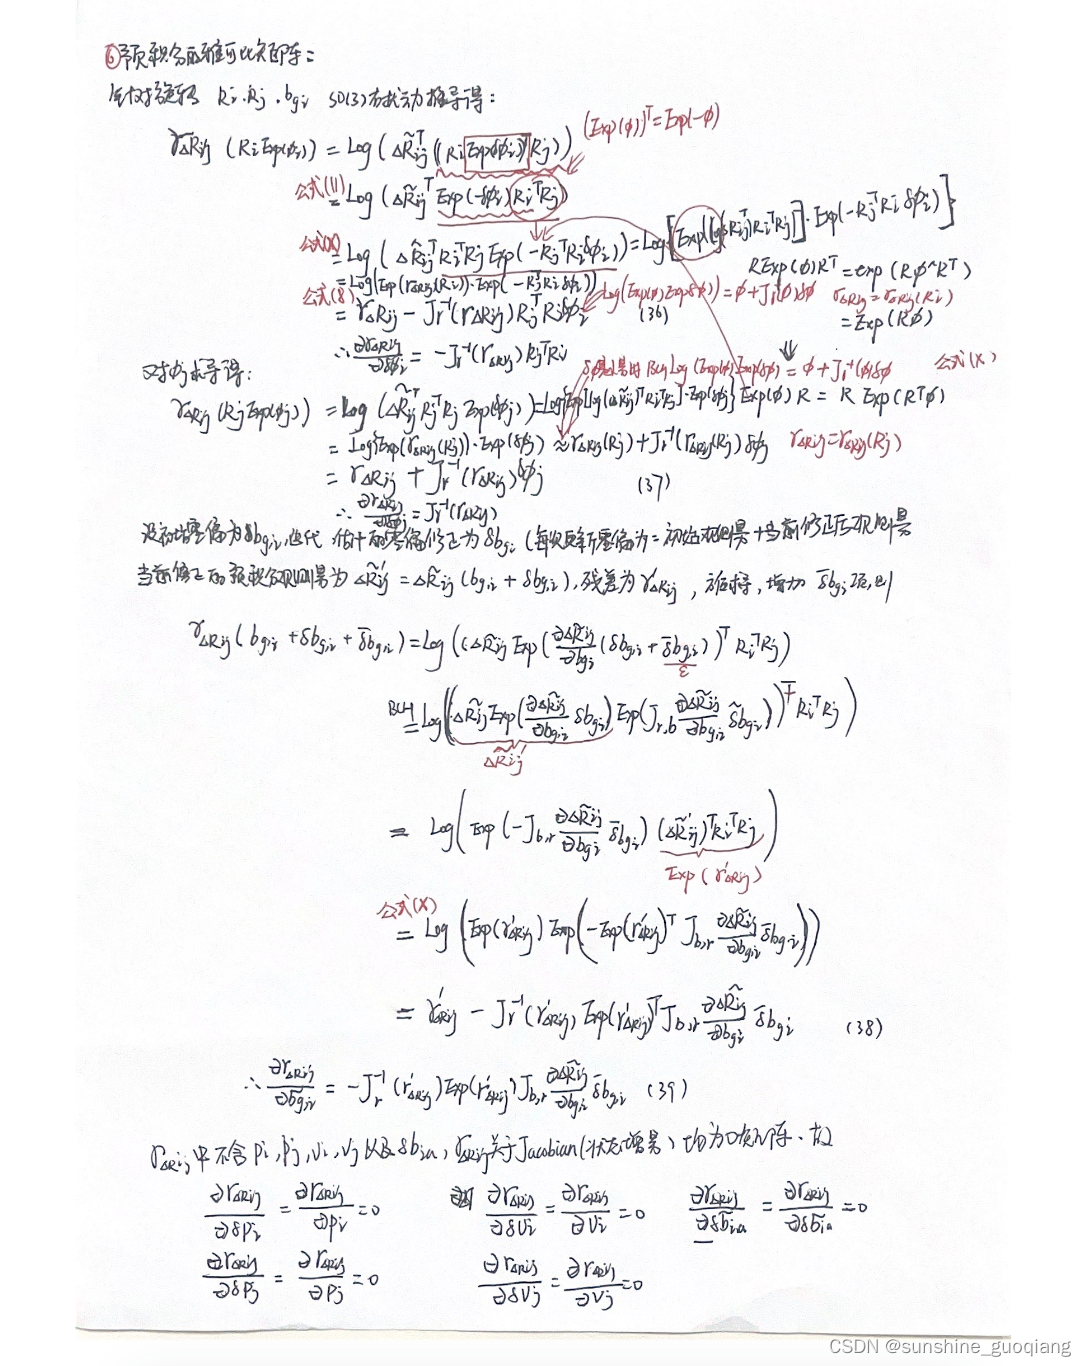 ⑥预积分的雅可比矩阵:
针对旋转 Ri、Rj、bgi SO(3)右扰动推导得:
(Exp(φ))ᵀ=Exp(-φ)
rΔRij (Ri Exp(δφi)) = Log(ΔR̃ijᵀ (Ri Exp(δφi))ᵀ Rj)
公式(11) = Log(ΔR̃ijᵀ Exp(-δφi) RiᵀRj)
公式(X) = Log(ΔR̃ijᵀ RiᵀRj Exp(-RjᵀRi δφi)) = Log{Exp[Log(ΔR̃ijᵀ)RiᵀRj]·Exp(-RjᵀRi δφi)}
= Log{Exp(rΔRij(Ri))·Exp(-RjᵀRi δφi)}
R Exp(φ)Rᵀ = exp(Rφ^Rᵀ)
= Exp(Rφ)
公式(8) = rΔRij - Jr⁻¹(rΔRij)RjᵀRi δφi (36)
Log(Exp(φ)Exp(δφ)) = φ+Jr⁻¹(φ)δφ
rΔRij = rΔRij(Ri)
∴ ∂rΔRij/∂δφi = -Jr⁻¹(rΔRij) RjᵀRi
对φj求导得:
BCH Log(Exp(φ)Exp(δφ)) = φ+Jr⁻¹(φ)δφ
公式(X)
rΔRij (Rj Exp(δφj)) = Log(ΔR̃ijᵀ RiᵀRj Exp(δφj)) = Log{Exp[Log(ΔR̃ij)ᵀRiᵀRj]·Exp(δφj)}
Exp(φ)R = R Exp(Rᵀφ)
= Log{Exp(rΔRij(Rj))·Exp(δφj)} ≈ rΔRij(Rj)+Jr⁻¹(rΔRij(Rj))δφj
rΔRij = rΔRij(Rj)
= rΔRij + Jr⁻¹(rΔRij)δφj (37)
∴ ∂rΔRij/∂δφj = Jr⁻¹(rΔRij)
设初始零偏为δbgi,迭代估计的零偏修正为δbgi(每次更新零偏为=初始观测量+当前修正后观测量
当前修正的预积分观测量为ΔR̃'ij = ΔR̃ij(bgi + δbgi),残差为r'ΔRij,右扰,增加 δ̃bgi项,则
rΔRij (bgi + δbgi + δ̃bgi) = Log((ΔR̃ij Exp(∂ΔR̃ij/∂bgi (δbgi + δ̃bgi))ᵀ RiᵀRj)
ε
BCH = Log((ΔR̃ij Exp(∂ΔR̃ij/∂bgi δbgi) Exp(Jr,b ∂ΔR̃ij/∂bgi δ̃bgi))ᵀ RiᵀRj)
ΔR̃ij'
= Log(Exp(-Jb,r ∂ΔR̃ij/∂bgi δ̃bgi) (ΔR̃'ij)ᵀRiᵀRj)
Exp(r'ΔRij)
公式(X)
= Log(Exp(r'ΔRij) Exp(-Exp(r'ΔRij)ᵀ Jb,r ∂ΔR̃ij/∂bgi δ̃bgi))
= r'ΔRij - Jr⁻¹(r'ΔRij) Exp(r'ΔRij)ᵀ Jb,r ∂ΔR̃ij/∂bgi δ̃bgi (38)
∴ ∂rΔRij/∂b̃gi = -Jr⁻¹(r'ΔRij)Exp(r'ΔRij)Jb,r ∂ΔR̃ij/∂bgi δ̃bgi (39)
rΔRij中不含pi,pj,vi,vj以及δbia,rΔRij关于Jacobian(状态增量)均为0矩阵、故
∂rΔRij/∂δPi = ∂rΔRij/∂Pi = 0 ∂rΔRij/∂δVi = ∂rΔRij/∂Vi = 0 ∂rΔRij/∂δb̃ia = ∂rΔRij/∂δb̃ia = 0
∂rΔRij/∂δPj = ∂rΔRij/∂Pj = 0 ∂rΔRij/∂δVj = ∂rΔRij/∂Vj = 0
CSDN @sunshine_guoqiang